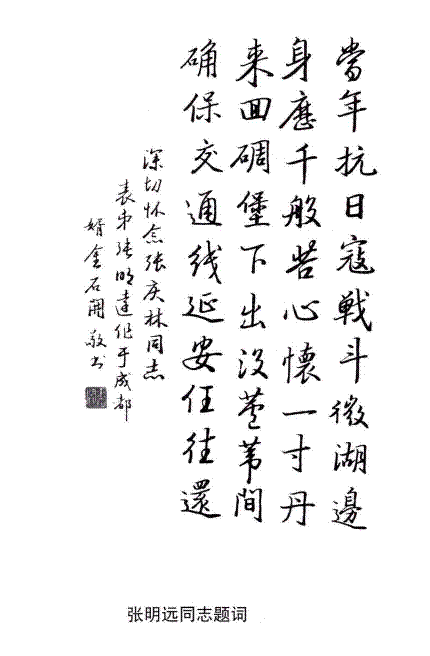 當年抗日寇戰斗微湖邊
身歷千般苦心懷一寸丹
来回碉堡下出没芦苇間
确保交通线延安任往還
深切怀念张庆林同志
表弟张明達作于成都
婿金石開敬书
张明远同志题词